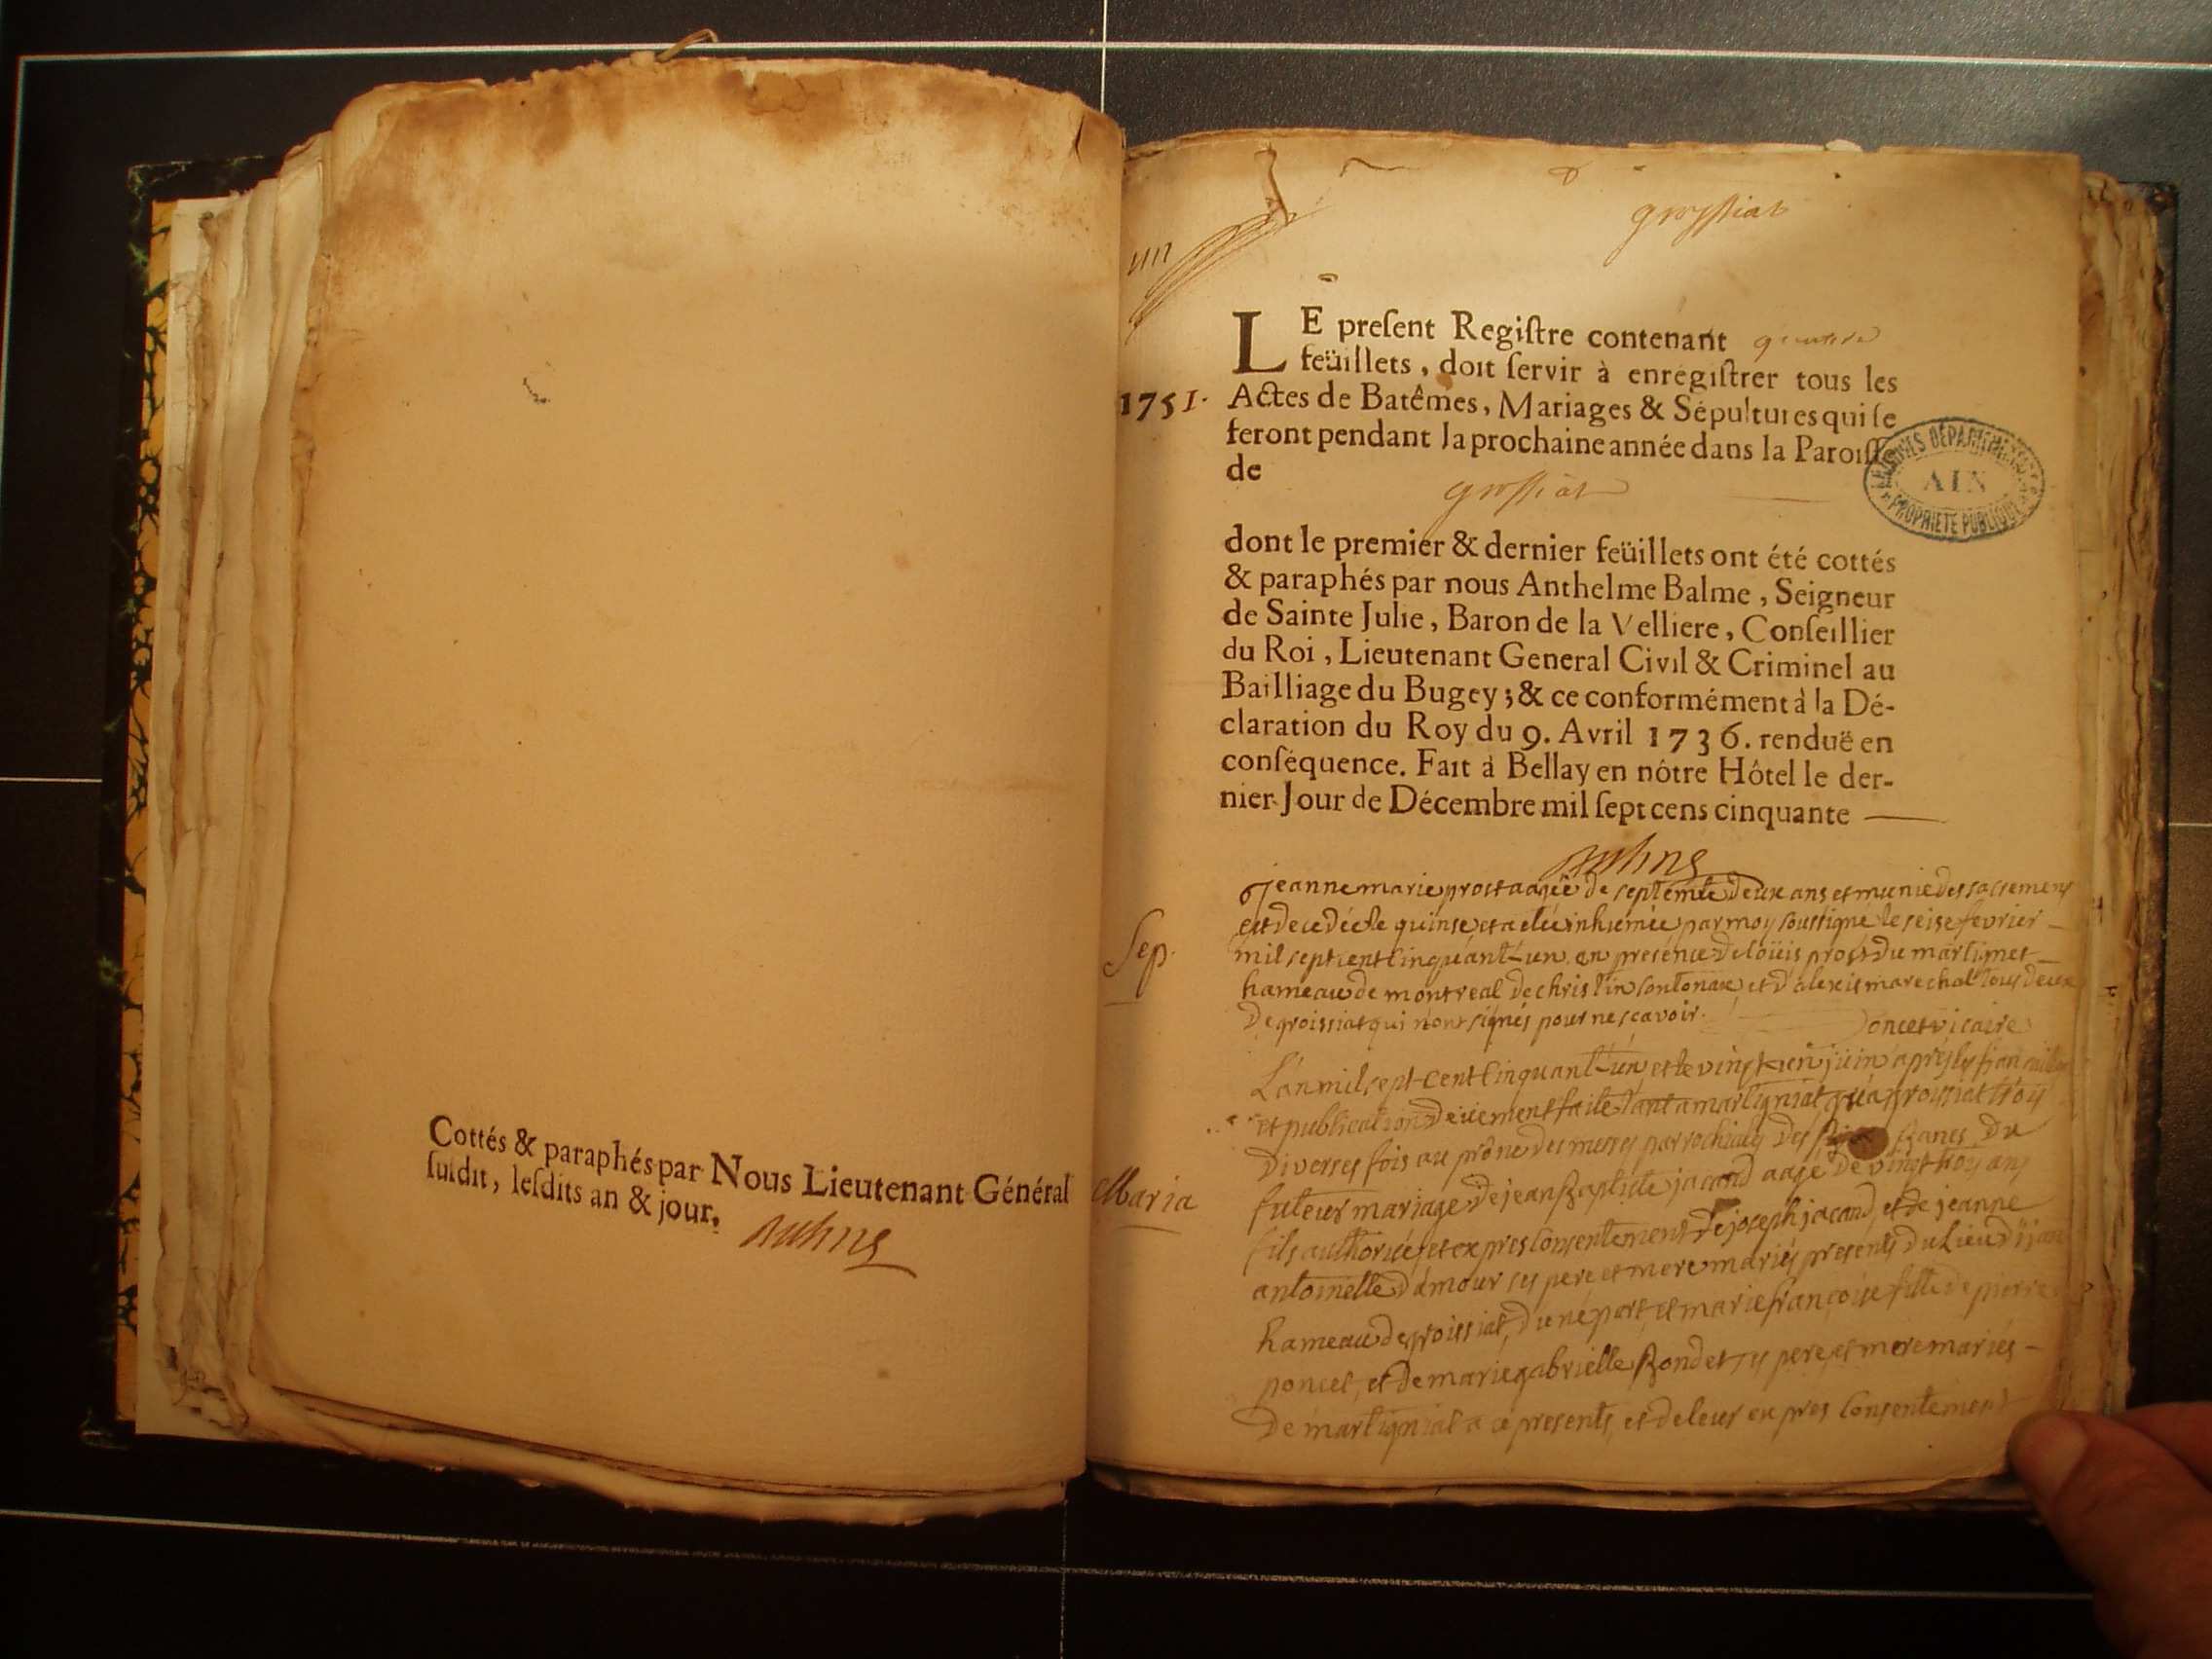 Cottés & paraphés par Nous Lieutenant Général
ſuſdit, leſdits an & jour.
grossiat
LE preſent Regiſtre contenant
feüillets, doit ſervir à enregiſtrer tous les
1751. Actes de Batêmes, Mariages & Sépultures qui ſe
feront pendant la prochaine année dans la Paroiſſe
de
grossiat
ARCHIVES DÉPARTEMENTALES
AIN
PROPRIÉTÉ PUBLIQUE
dont le premier & dernier feüillets ont été cottés
& paraphés par nous Anthelme Balme, Seigneur
de Sainte Julie, Baron de la Velliere, Conſeillier
du Roi, Lieutenant General Civil & Criminel au
Bailliage du Bugey; & ce conformément à la Dé-
claration du Roy du 9. Avril 1736. renduë en
conſéquence. Fait à Bellay en nôtre Hôtel le der-
nier Jour de Décembre mil ſept cens cinquante
jeanne marie prost aagée de septente deux ans et munie des sacremens
est decedée le quinse et a etée inhumée par moy soussigné le seise fevrier
Sep.
mil sept cent cinquant-un en presence de loüis prost du martimet
hameau de montreal de christin contonax et d'alexis marechal tous deux
de groissiat qui n'ont signés pour ne scavoir.
Poncet vicaire
L'an mil sept cent cinquant-un et le vingt un juin après les fiancailles
et publications deüement faite tant a martigniat qu'a groissiat trois
diverses fois au prône des messes parrochiales des bans du
Maria
futeur mariage de jean Baptiste jacand aagé de vingt trois ans
fils authorisé et expres consentement de joseph jacand, et de jeanne
antoinette d'amour ses pere et mere mariés presents du Lieu
hameau de groissiat, d'une part, et marie françoise fille de pierre
poncet, et de marie gabrielle Bondet ses pere et mere mariés
de martigniat a ce presents, et de leur expres consentement